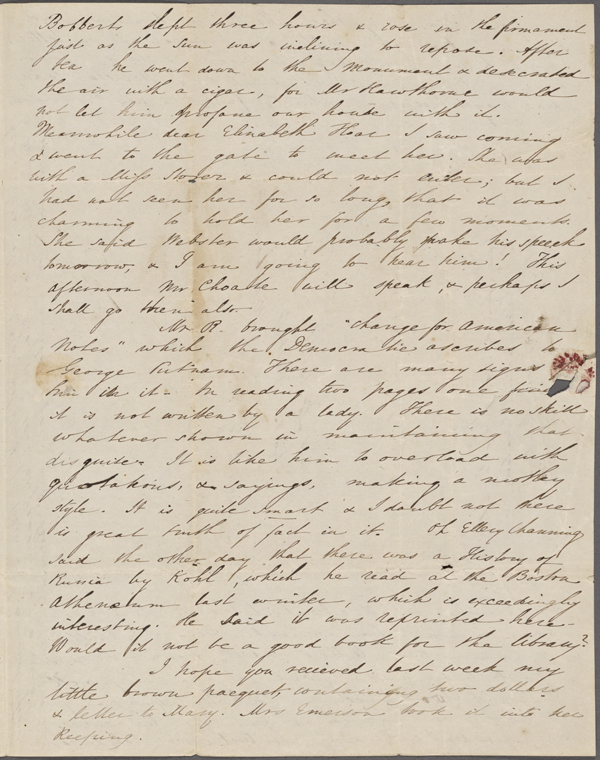 Bobberts slept three hours & rose in the firmament
just as the sun was inclining to repose. After
tea he went down to the Monument & desecrated
the air with a cigar, for Mr Hawthorne would
not let him profane our house with it.
Meanwhile dear Elizabeth Hoar I saw coming
& went to the gate to meet her. She was
with a Miss Storer & could not enter; but I
had not seen her for so long, that it was
charming to hold her for a few moments.
She said Webster would probably make his speech
tomorrow, & I am going to hear him! This
afternoon Mr. Choate will speak, & perhaps I
shall go then also.
Mr R. brought "change for American
Notes" which the Democratic ascribes to
George Putnam. There are many signs
him in it. In reading two pages one
it is not written by a lady. There is no skill
whatever shown in maintaining that
disguise. It is like him to overload with
quotations, & sayings, making a motley
style. It is quite smart & I doubt not there
is great truth of fact in it. Ellery Channing
said the other day that there was a History of
Russia by Kohl, which he read at the Boston
Athenæum last winter, which is exceedingly
interesting. He said it was reprinted here.
Would it not be a good book for the library?
I hope you recieved last week my
little brown pacquet containing two dollars
& letter to Mary. Mrs Emerson took it into her
keeping.